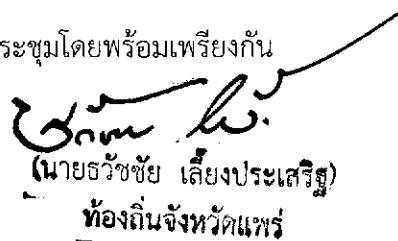 ระชุมโดยพร้อมเพรียงกัน
(นายธวัชชัย เลี้ยงประเสริฐ)
ท้องถิ่นจังหวัดแพร่